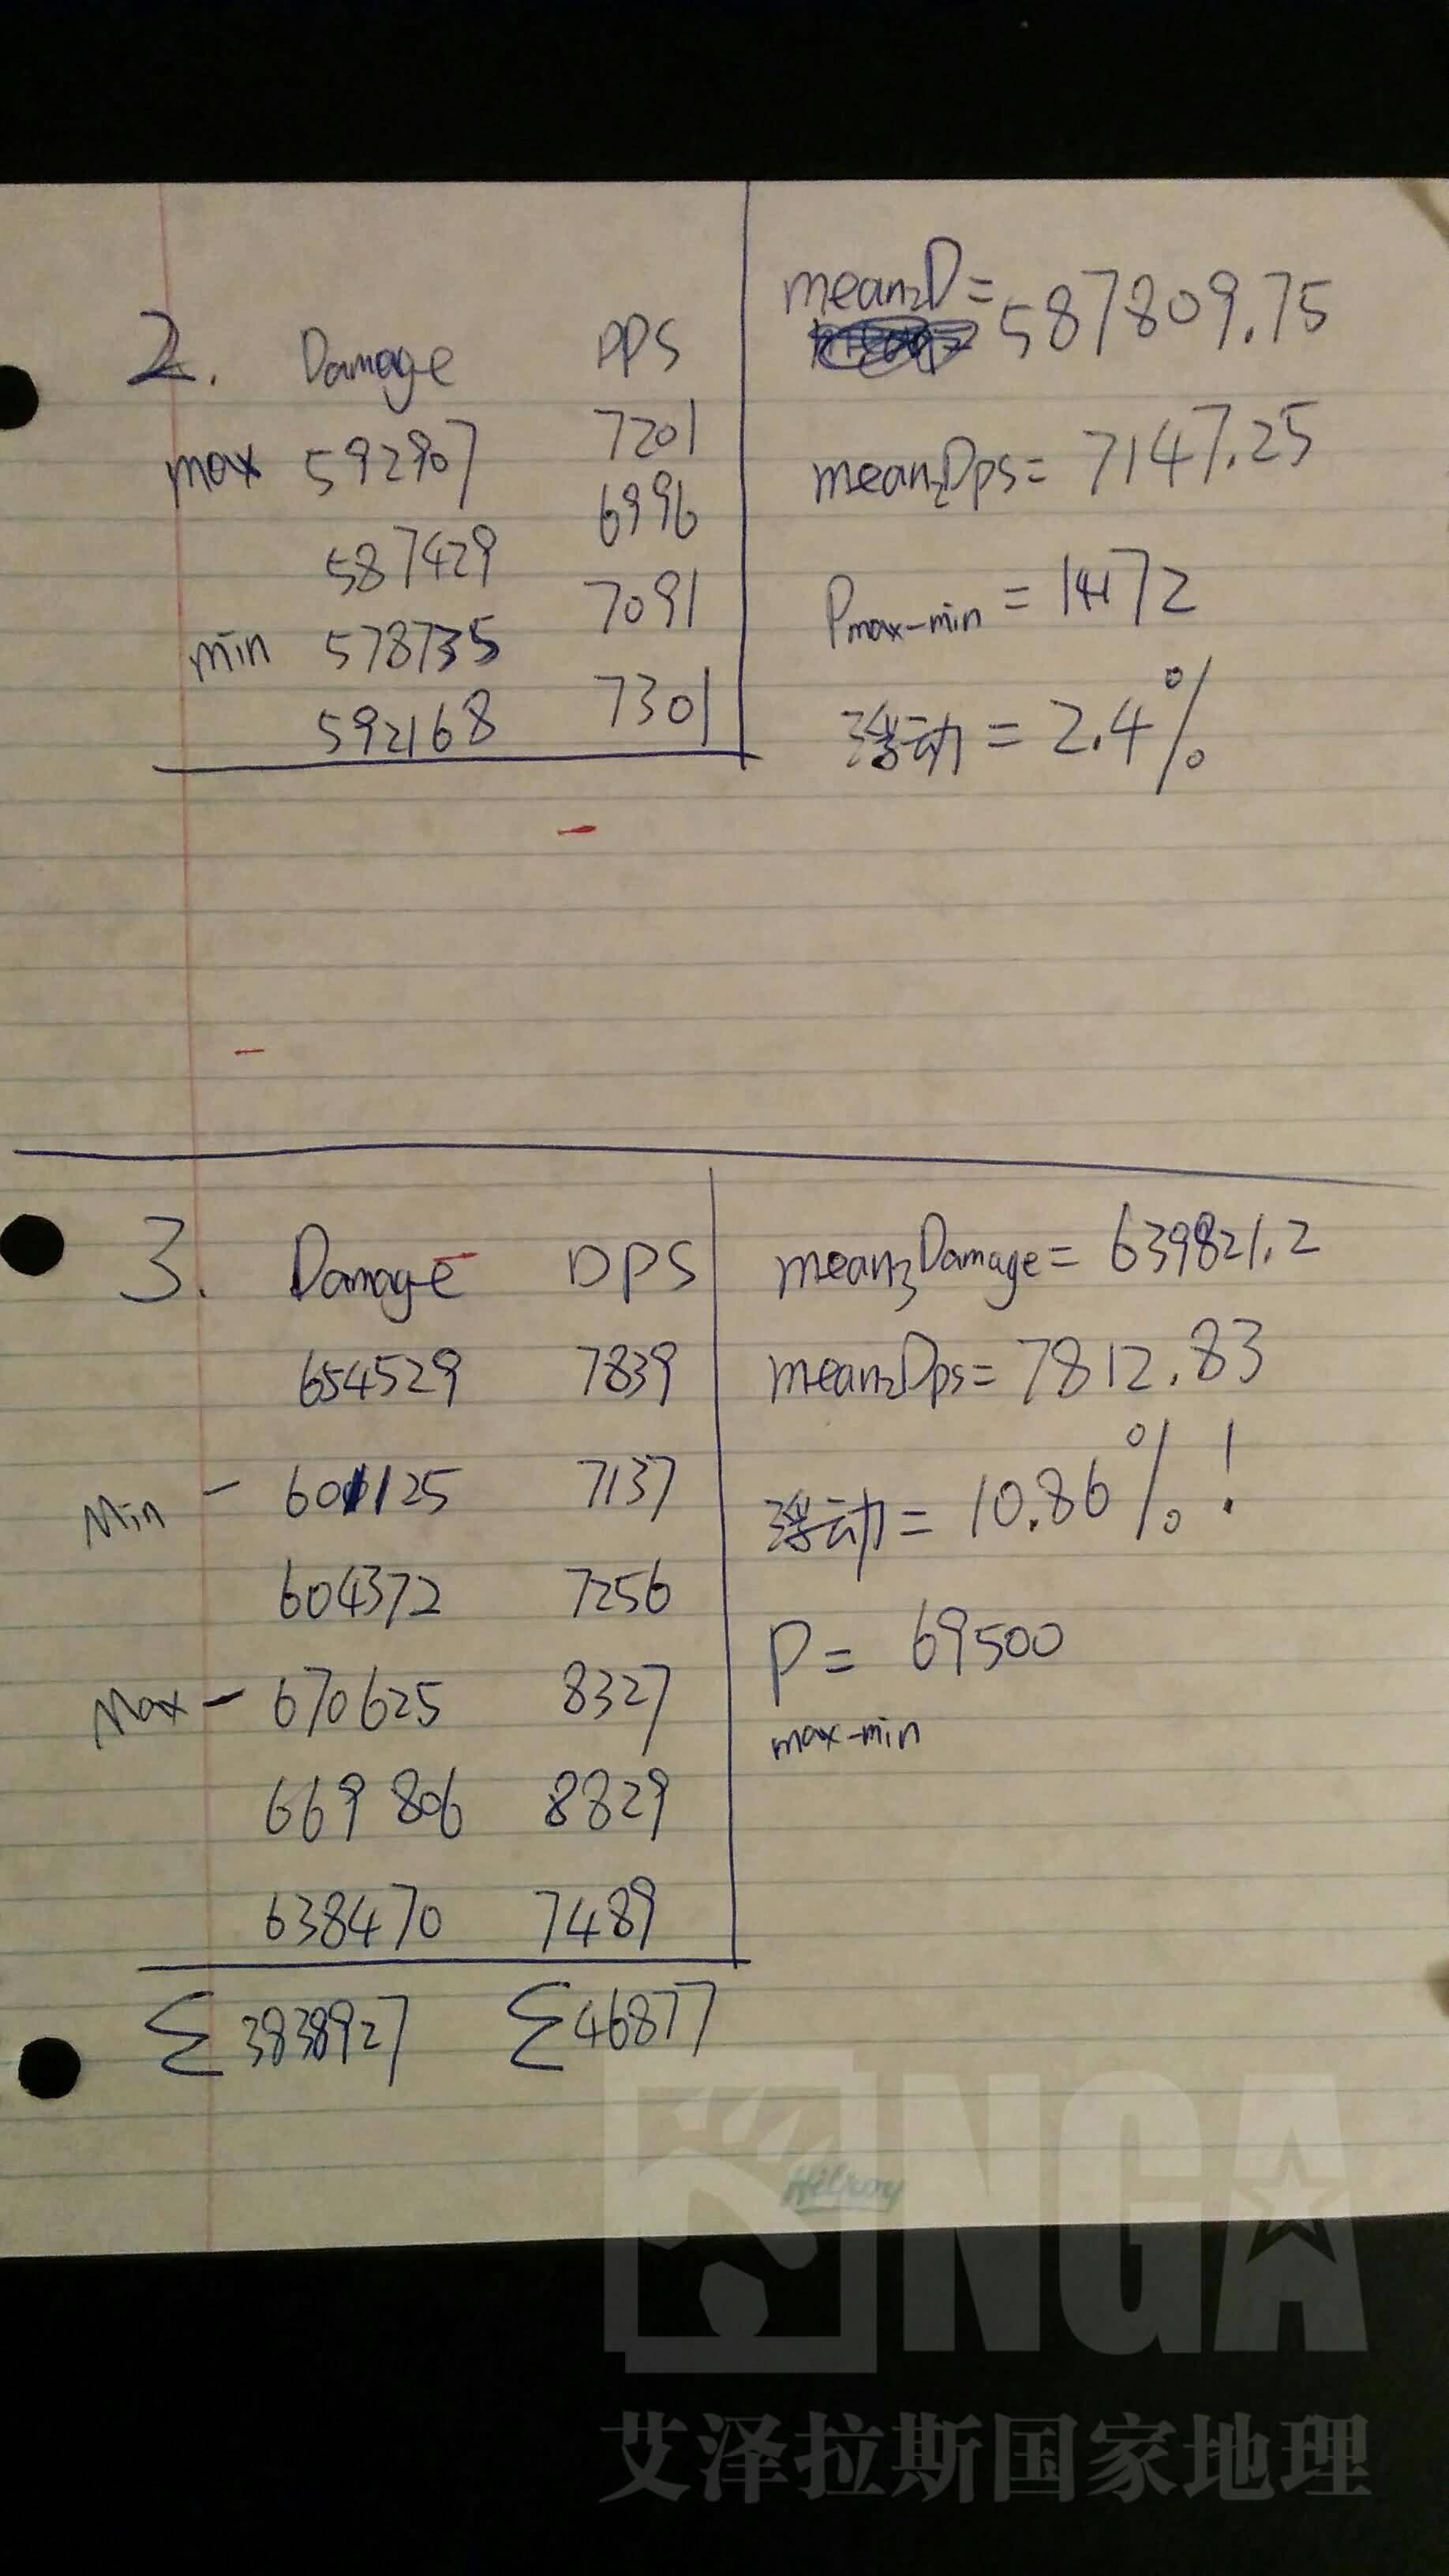 2. Damage DPS
max 592907 7201
587429 6996
min 578735 7091
592168 7301
mean2D=
587809.75
mean2Dps= 7147.25
Pmax-min = 14172
浮动 = 2.4%
3. Damage DPS
654529 7839
Min - 601125 7137
604372 7256
Max - 670625 8327
669806 8829
638470 7489
Σ3838927 Σ46877
mean3Damage= 639821.2
mean3Dps= 7812.83
浮动= 10.86%!
P= 69500
max-min
Hilroy
NGA
艾泽拉斯国家地理